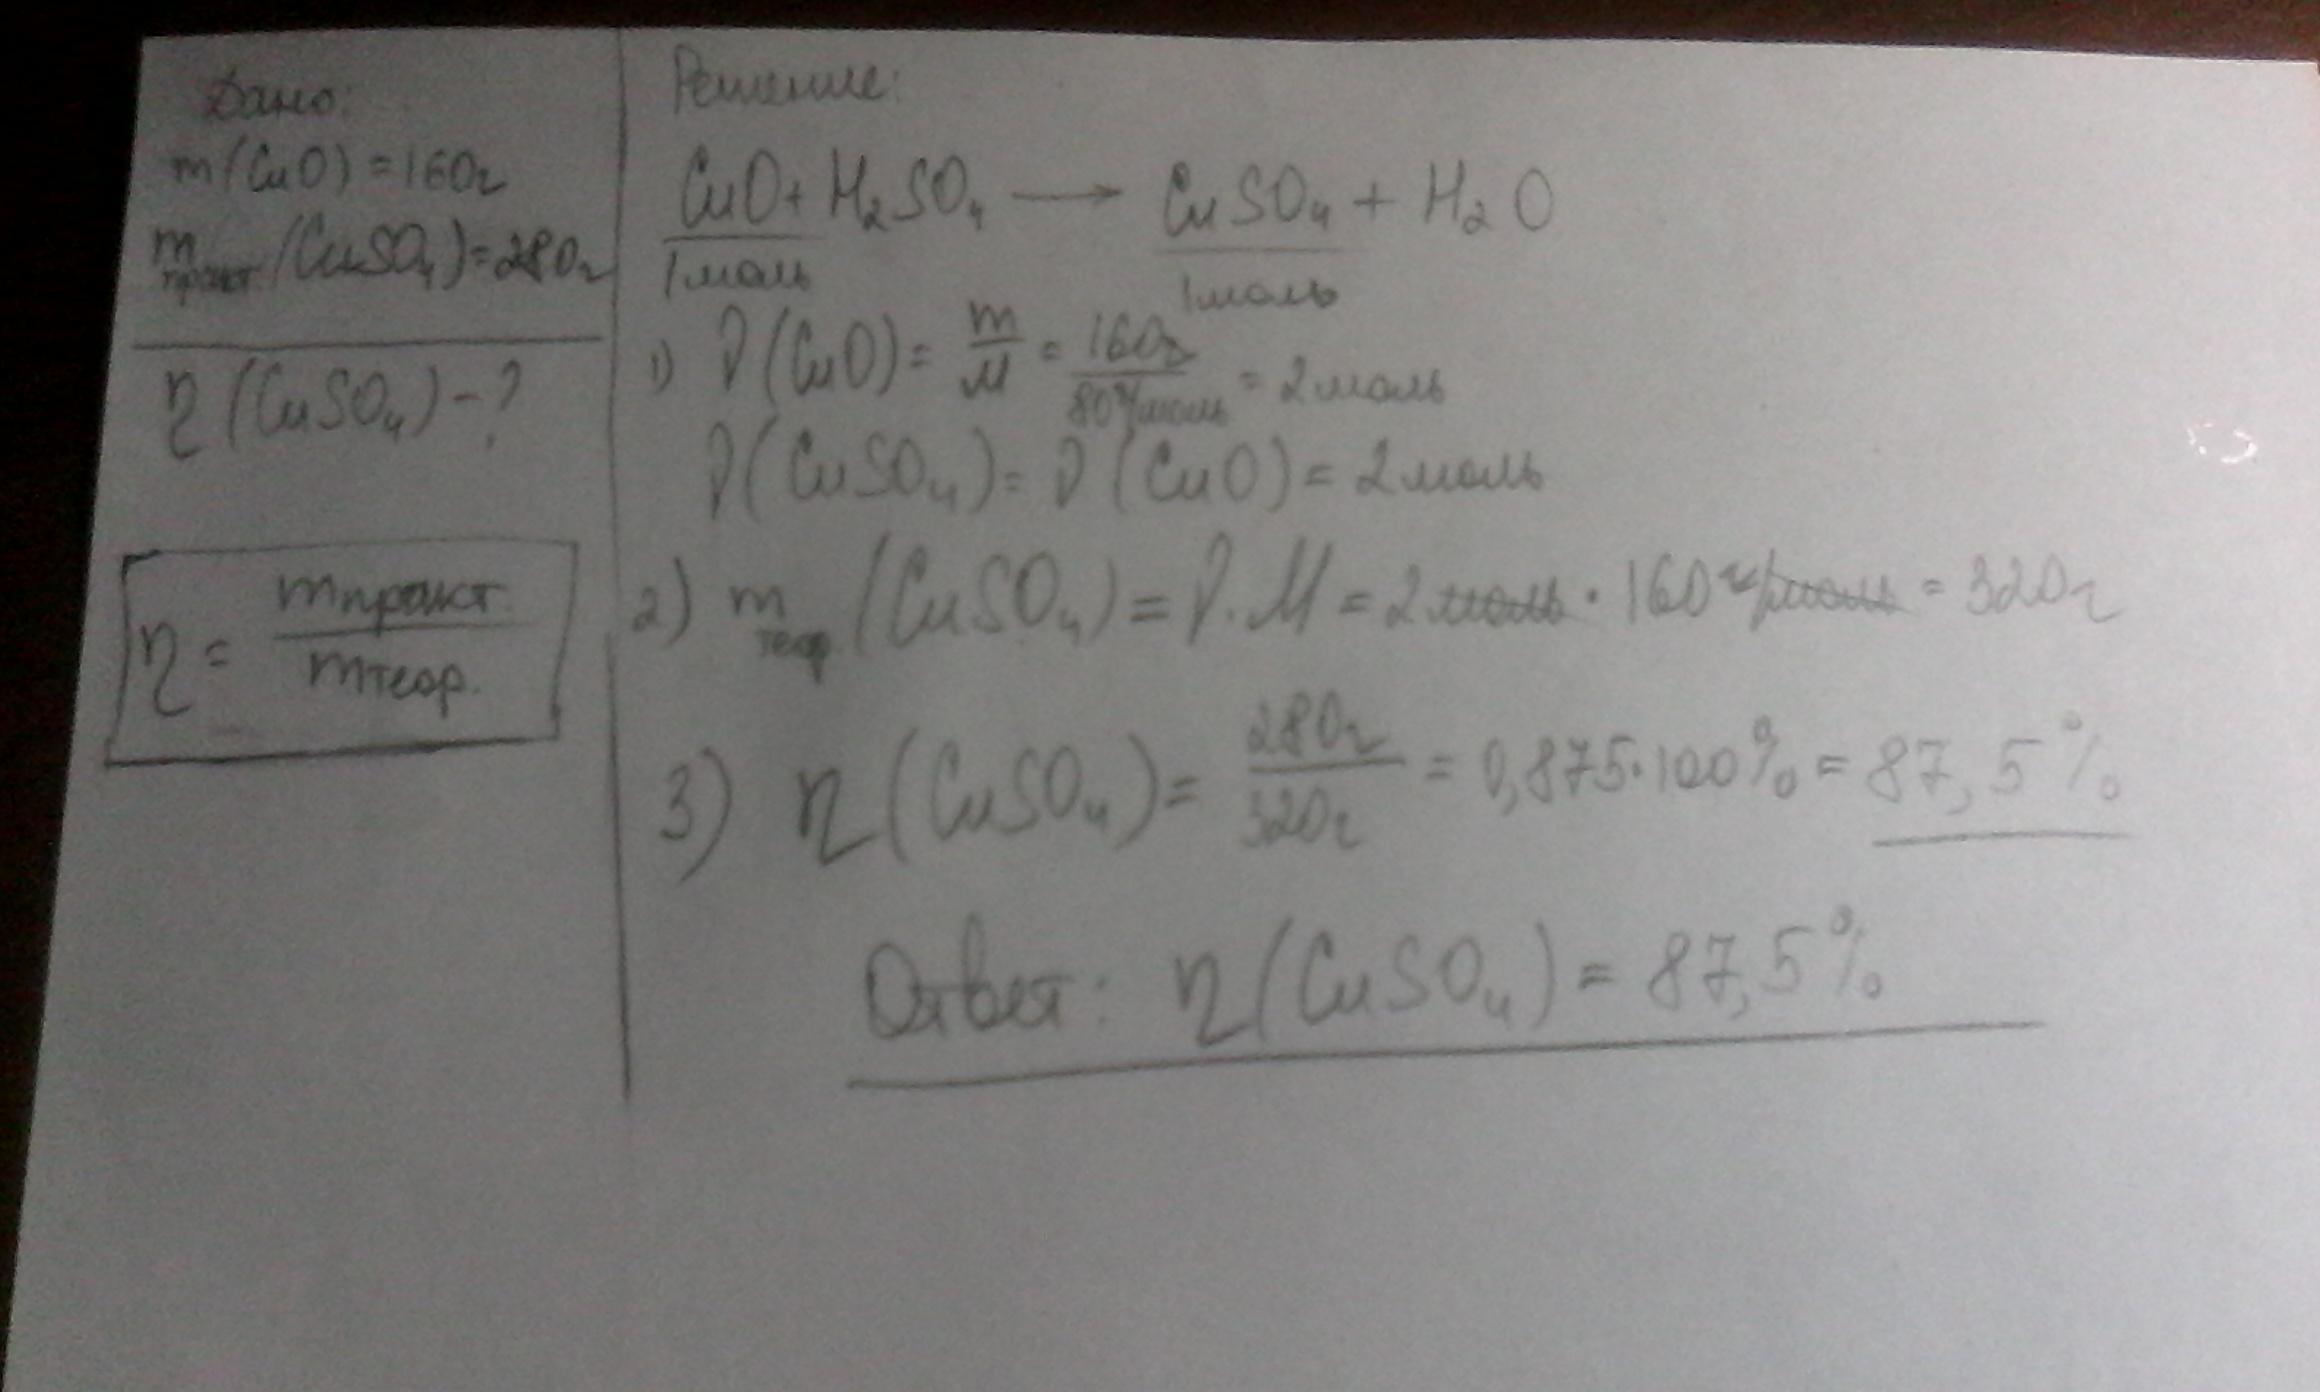 Дано:
m(CuO)=160г
m практ. (CuSO₄)=280г
η (CuSO₄) - ?
η = mпракт. / mтеор.
Решение:
CuO + H₂SO₄ → CuSO₄ + H₂O
1моль 1моль
1) ν(CuO) = m/M = 160г/80г/моль = 2моль
ν(CuSO₄) = ν(CuO) = 2моль
2) m теор (CuSO₄) = ν·M = 2моль · 160г/моль = 320г
3) η (CuSO₄) = 280г/320г = 0,875·100% = 87,5%
Ответ: η(CuSO₄) = 87,5%